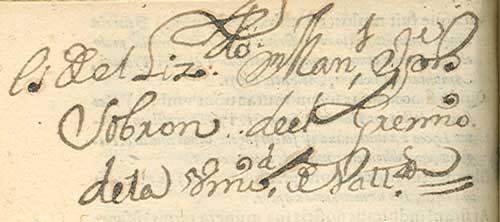 es del Liz.do Man.l Jph
Sobron del Gremio
dela Vni.d de Vall.d